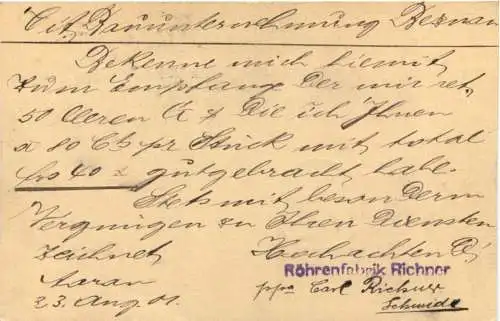 Tit. Bauunternehmung Beznau
Bekenne mich hiemit
zum Empfang der mir ret.
50 leeren die ich Ihnen
a 80 Cts pr Stück mit total
frs 40 gutgebracht habe.
Stets mit besonderm
Vergnügen zu Ihren Diensten
zeichnet Hochachtend
Röhrenfabrik Richner
Aarau ppa Carl Richner
23. Aug. 01. Schmidt